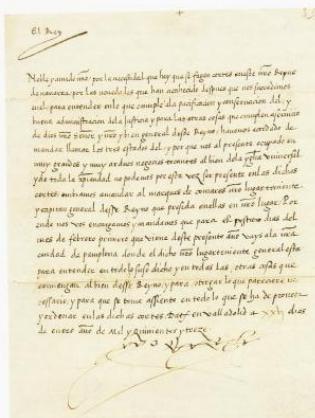 El Rey
Noble y amado nro: por la necesidad que hay que se fagan cortes en esse nro Reyno
de nauarra: por las nouedades que han acahecido despues que nos sucedimos
en el: para entender enlo que cumple ala pacificacion y conseruacion del: y
buena administracion dela Justicia y para las otras cosas que cumplen a seruicio
de dios nro Señor, e nro y bien general desse Reyno: hauemos acordado de
mandar llamar los tres estados del: y por que nos al presente ocupado en
muy grandes y muy arduos negocios tocantes al bien dela yglia vniuersal
y de toda la xpiandad no podemos por esta vez ser presente enlas dichas
cortes embiamos a mandar al marques de comares nro lugarteniente
y capitan general desse Reyno que presida enellas en nro lugar. Por
ende nos vos encargamos y mandamos que para el postrero dias del
mes de febrero primero que viene deste presente año vays ala nra
ciudad de pamplona donde el dicho nro lugarteniente general esta
para entender en todo lo suso dicho y en todas las otras cosas que
conuengan al bien desse Reyno y para otorgar lo que pareciere ne
cessario, y para que se tome assiento en todo lo que se ha de proueer
y ordenar enlas dichas cortes. Dat en valladolid a dias
de enero año de Mil y Quinientos y treze.